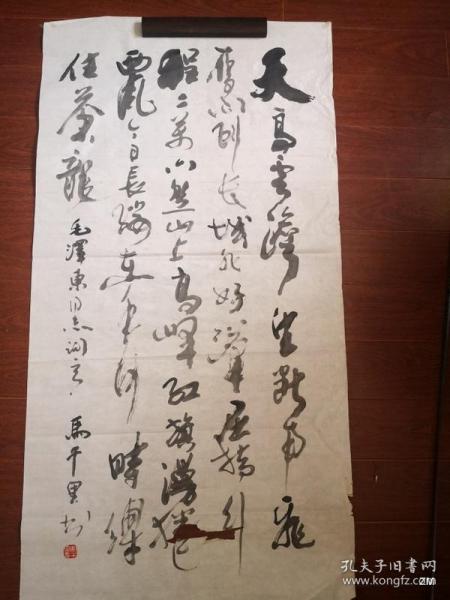 天高雲淡望斷南飛
雁不到長城非好漢屈指行
程二萬六盤山上高峰紅旗漫捲
西風今日長纓在手何時縛
住蒼龍
毛澤東同志詞 馬千里
孔夫子旧书网
www.kongfz.com